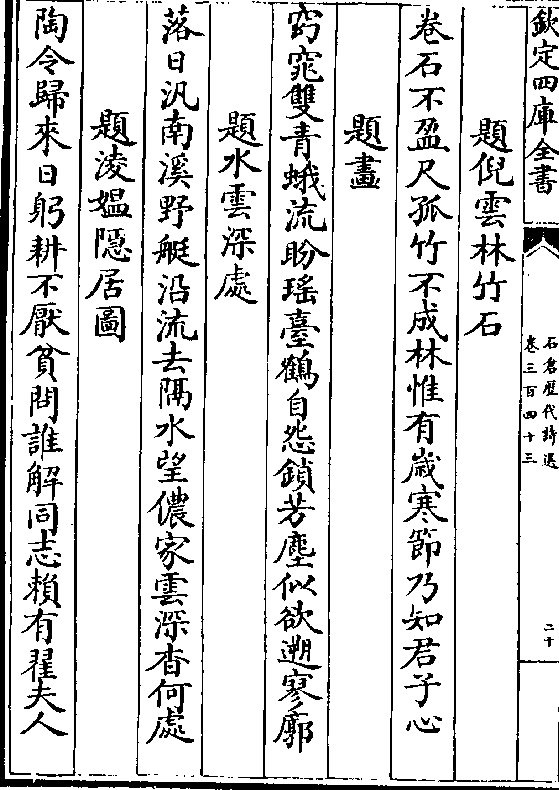 欽定四庫全書
石倉歷代詩選
卷三百四十三
二十
題倪雲林竹石
卷石不盈尺孤竹不成林惟有歲寒節乃知君子心
題畫
窈窕雙青蛾流盼瑤臺鶴自怨鎖芳塵似欲遡寥廓
題水雲深處
落日汎南溪野艇沿流去隔水望儂家雲深杳何處
題淩媼隱居圖
陶令歸來日躬耕不厭貧問誰解同志賴有翟夫人